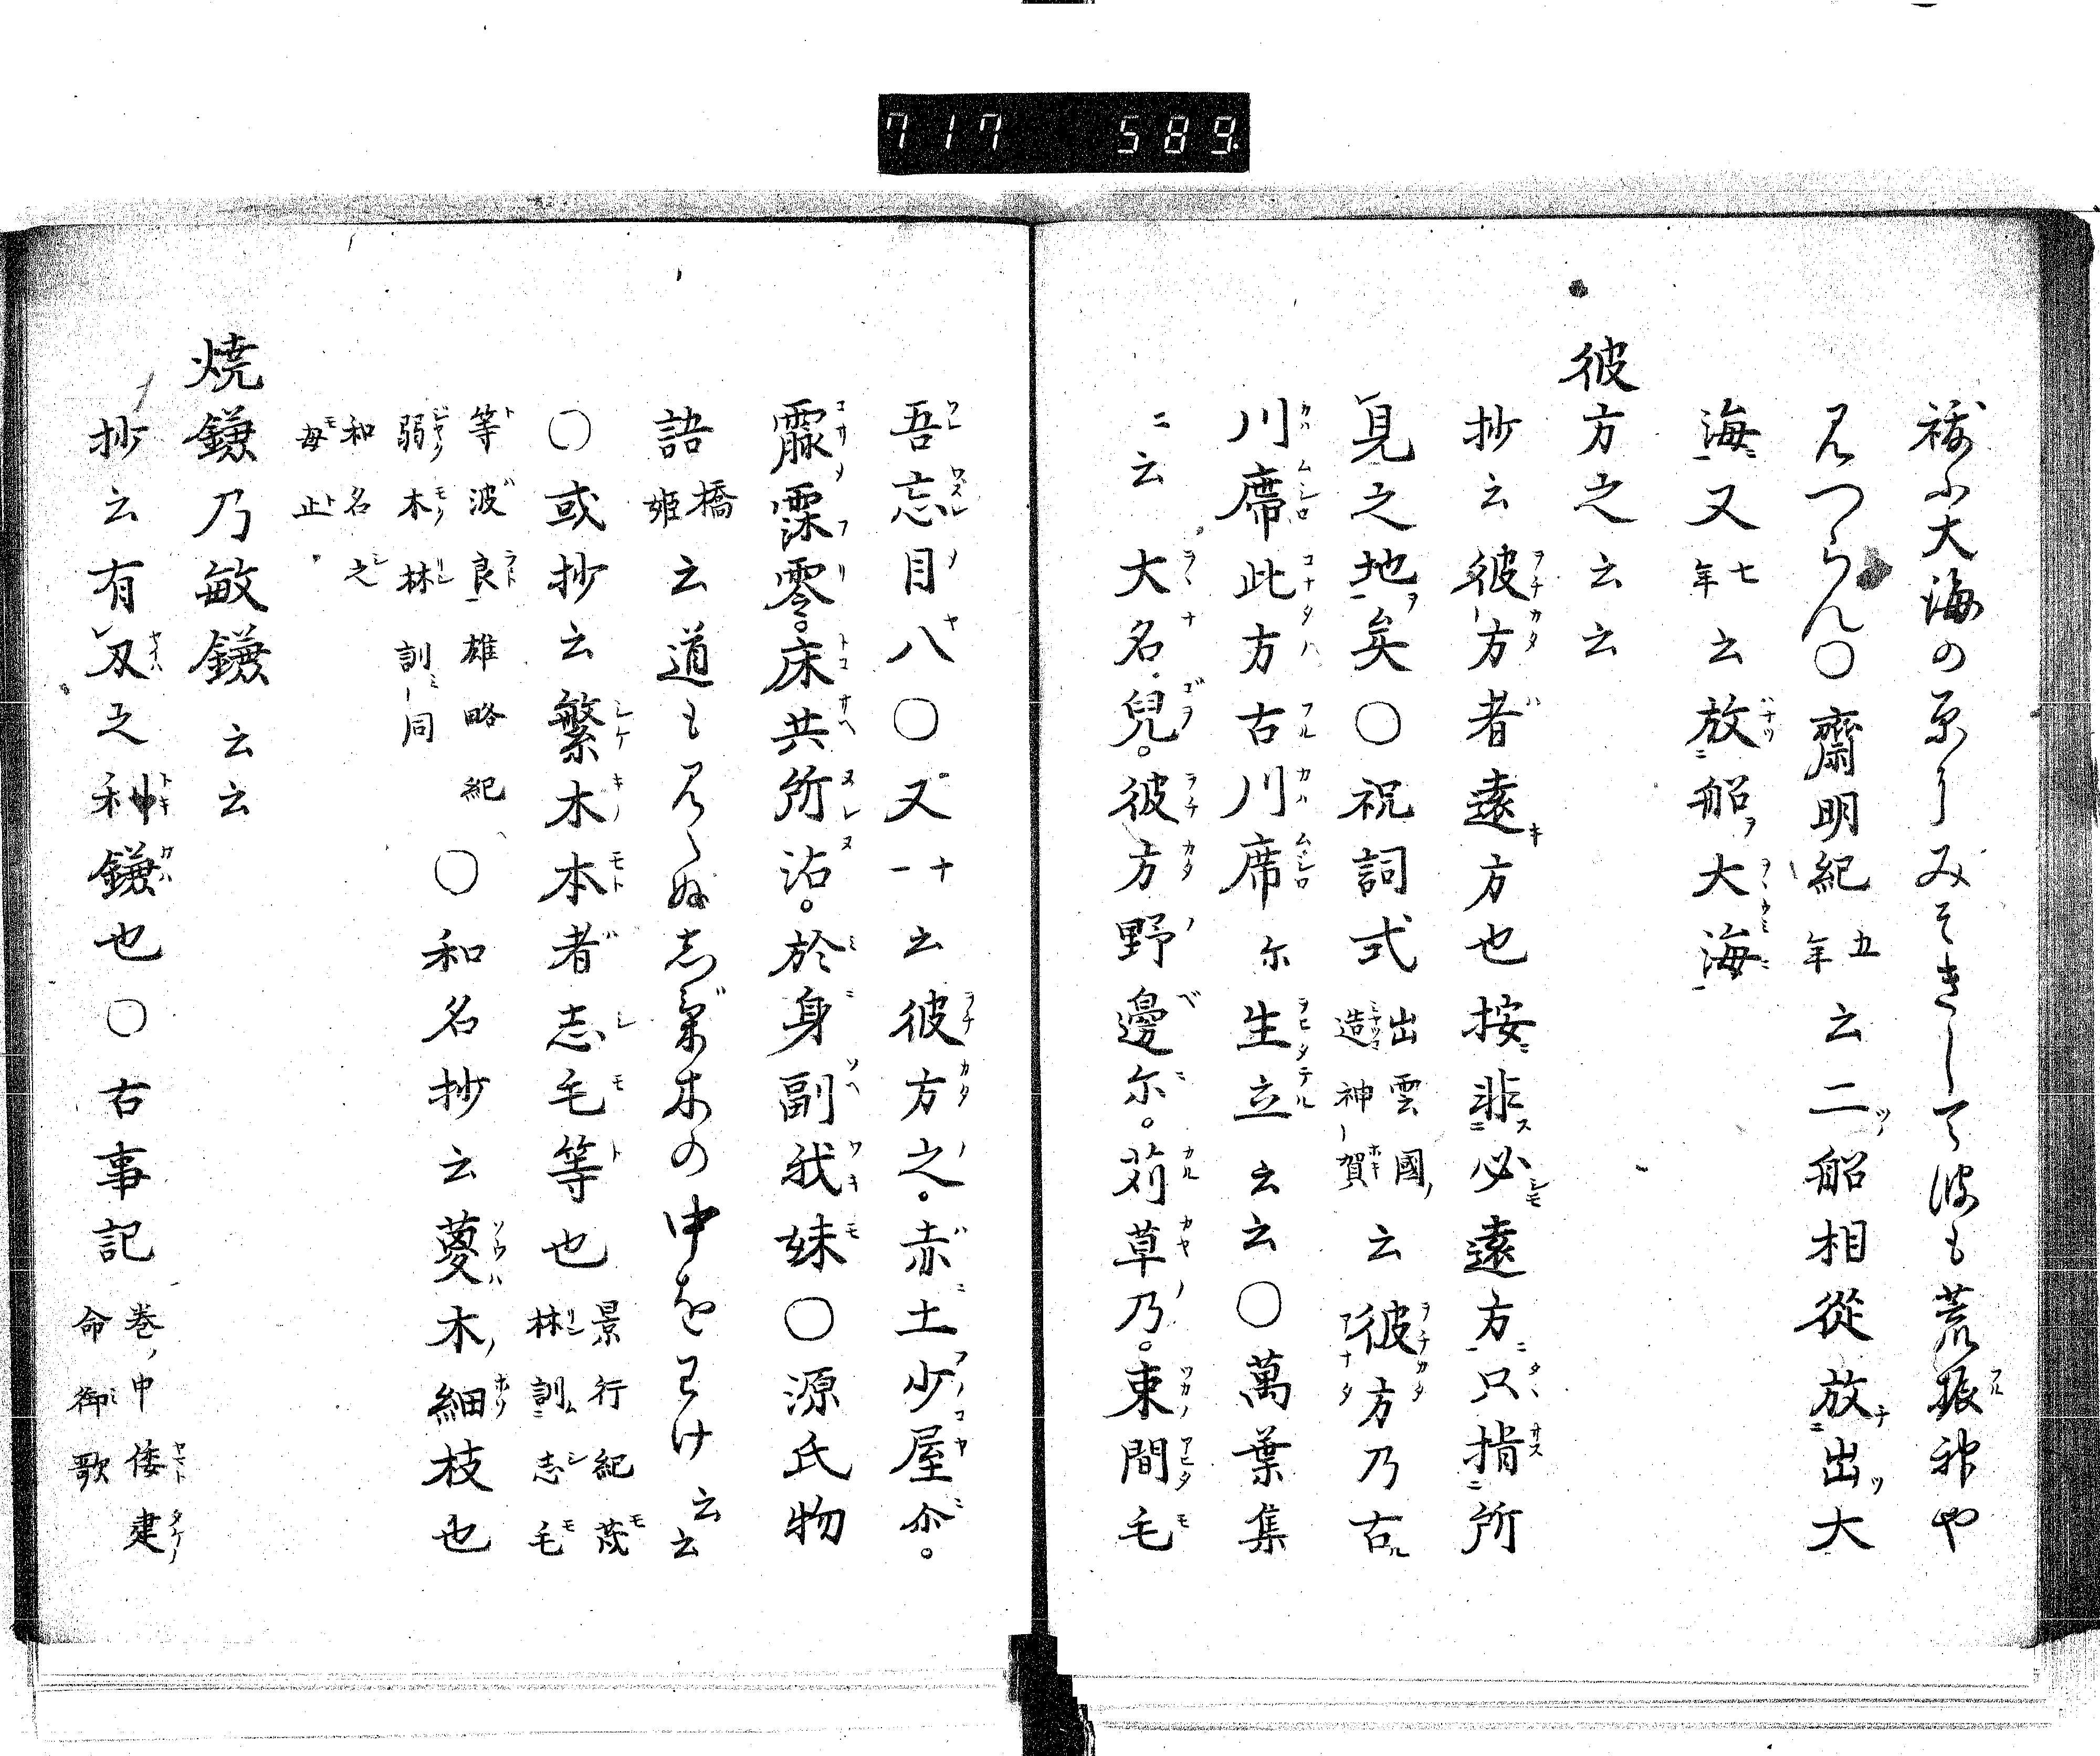 717 589
祓ふ大海の原にみそきして波も荒振神や
みつらん〇齋明紀五年云二船相從放出大
海又七年云放船大海
彼方之云云
抄云彼方者遠方也按非必遠方只指所
見之地矣〇祝詞式出雲國造神賀云彼方乃古
川席此方古川席尓生立云云〇萬葉集
ニ云大名兒。彼方野邊尓。苅草乃。束間毛
吾忘目八〇又十一云彼方之。赤土少屋尓。
霡霂零。床共所沾。於身副我妹〇源氏物
語橋姫云道もみえぬしげ木の中をわけ云云
〇或抄云繁木本者志毛等也景行紀茂林訓志毛
等波良雄略紀弱木林訓同〇和名抄云蔓木細枝也
和名之毛止
焼鎌乃敏鎌云云
抄云有刃之利鎌也〇古事記巻中倭建命御歌